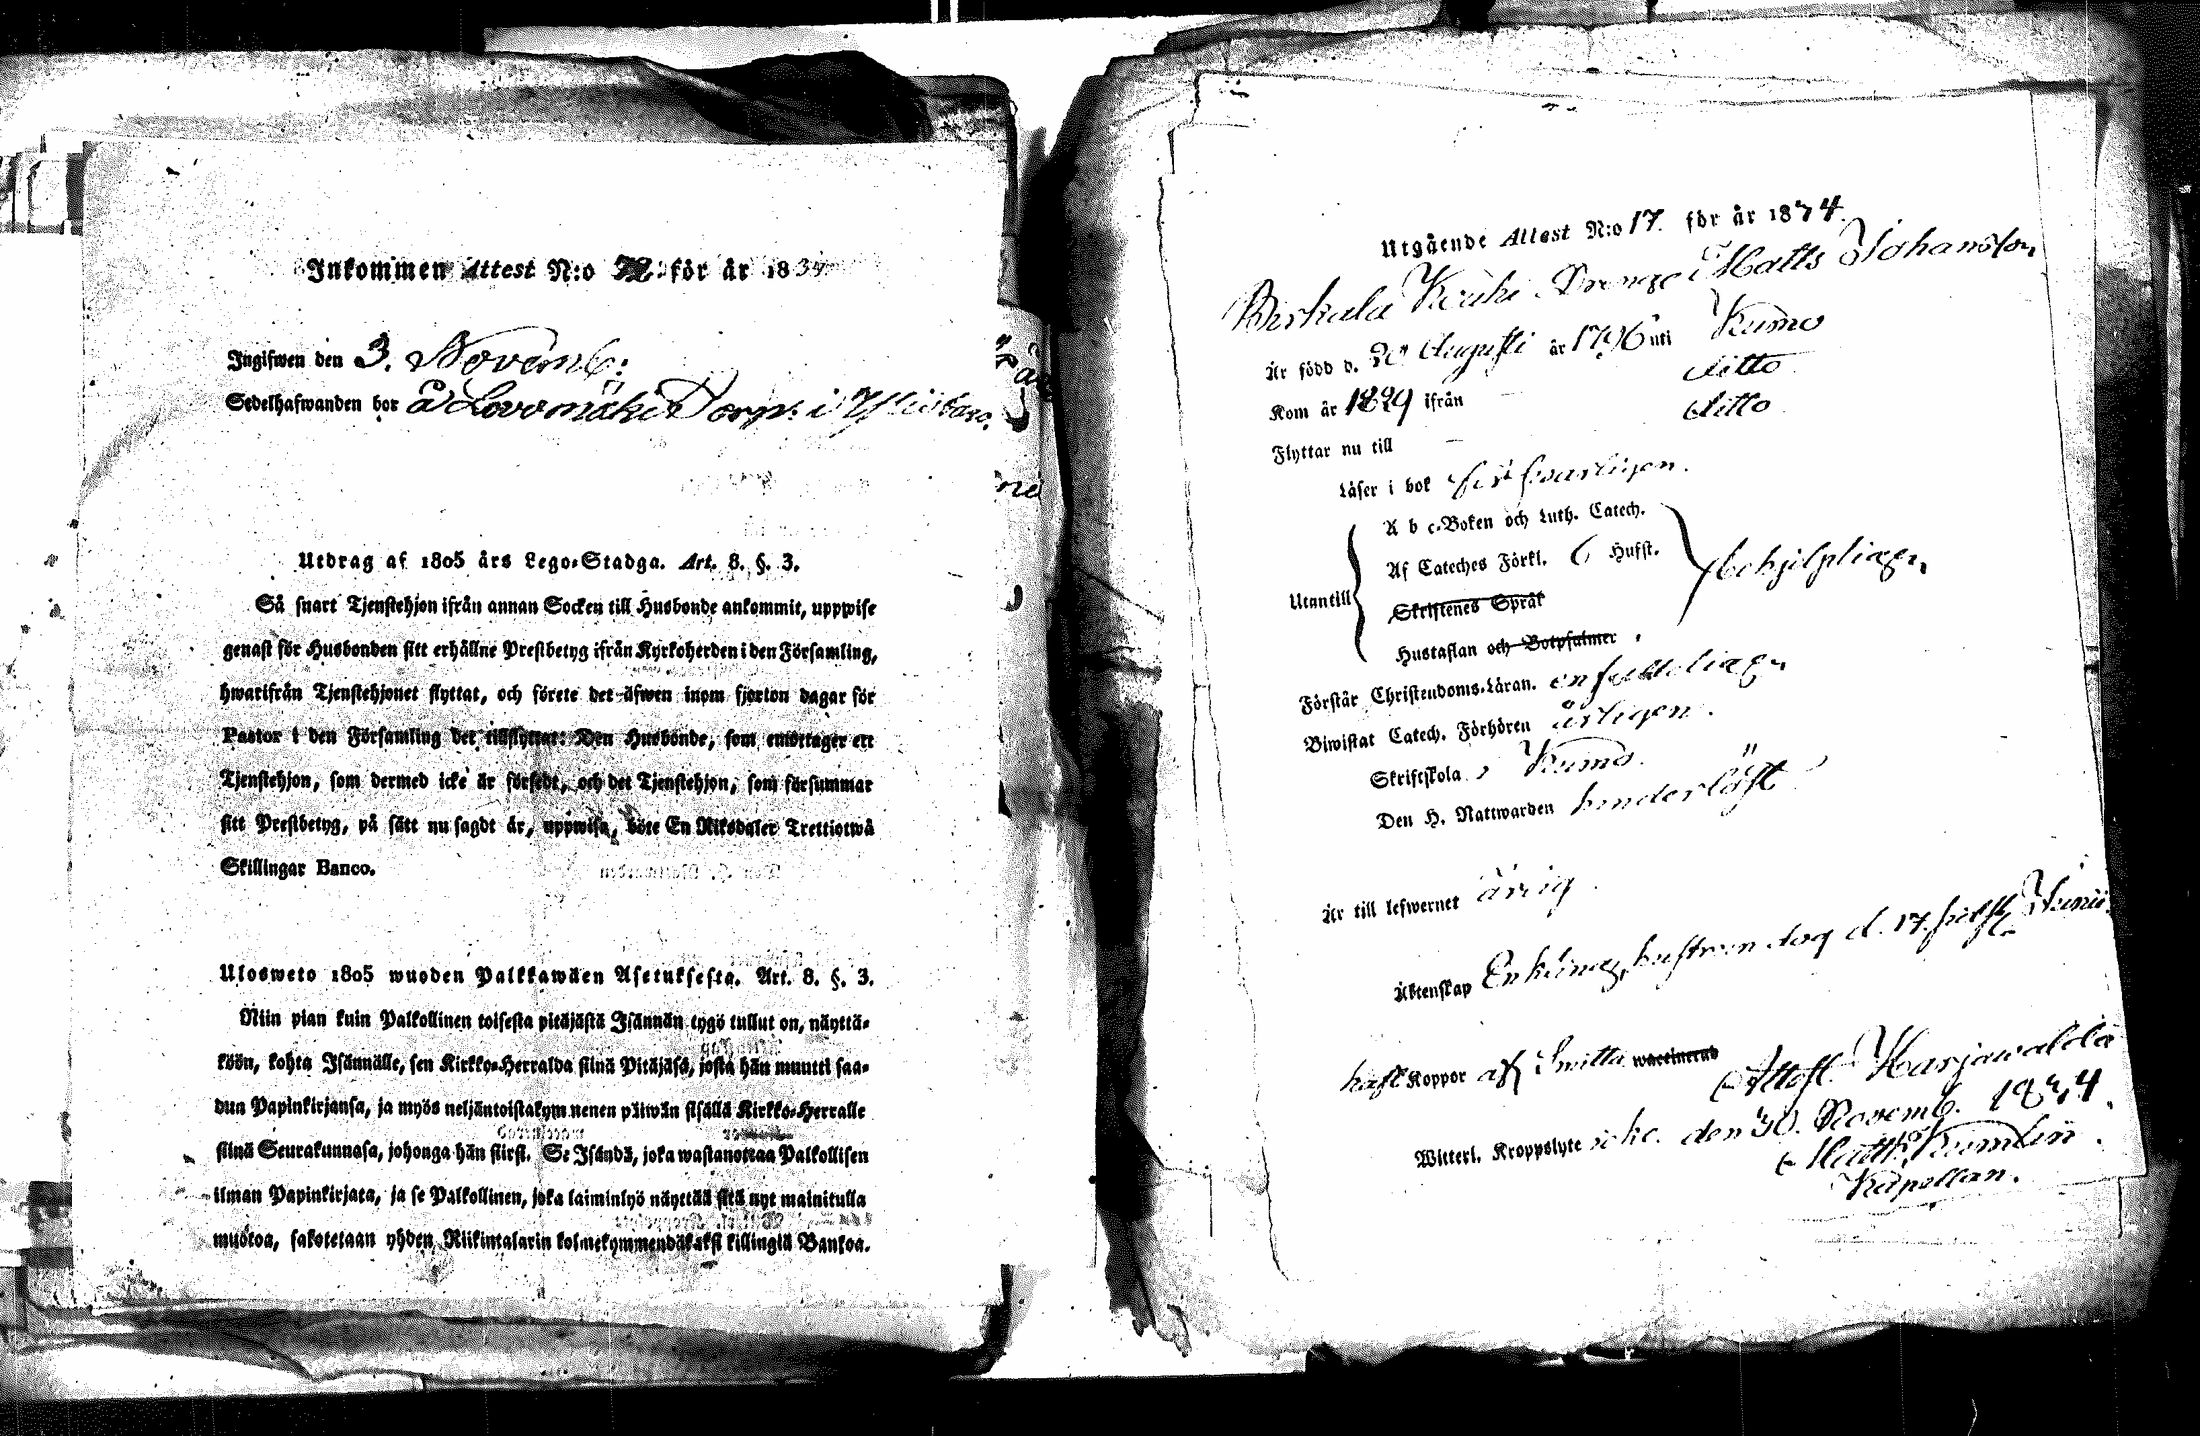 Inkommen Attest N:o 72. för år 1834
Ingifwen den 3. Novemb:
Sedelhafwanden bor å Lovomäki Torp: i
Utdrag af 1805 års Lego-Stadga. Art. 8. §. 3.
Så snart Tjenstehjon ifrån annan Socken till Husbonde ankommit, uppwise
genast för Husbonden sitt erhållne Prestbetyg ifrån Kyrkoherden i den Församling,
hwarifrån Tjenstehjonet flyttat, och förete det äfwen inom fjorton dagar för
Pastor i den Församling det tillflyttat: Den Husbonde, som emottager ett
Tjenstehjon, som dermed icke är försedt, och det Tjenstehjon, som försummar
sitt Prestbetyg, på sätt nu sagdt är, uppwisa, böte En Riksdaler Trettiotwå
Skillingar Banco.
Ulosweto 1805 wuoden Palkkawäen Asetuksesta. Art. 8. §. 3.
Niin pian kuin Palkollinen toisesta pitäjästä Isännän tygö tullut on, näyttä-
köön, kohta Isännälle, sen Kirkko-Herralda siinä Pitäjäsä, josta hän muutti saa-
dun Papinkirjansa, ja myös neljäntoistakymmenen päiwän sisällä Kirkko-Herralle
siinä Seurakunnasa, johonga hän siirsi. Se Isändä, joka wastanottaa Palkollisen
ilman Papinkirjata, ja se Palkollinen, joka laiminlyö näyttää sitä nyt mainitulla
muotoa, sakotetaan yhden Riikintalarin kolmekymmendäkaksi killingiä Bankoa.
Utgående Attest N:o 17. för år 1834.
Birkala Kouki Drenge Matts Johansson
Är född d. 20 Augusti år 1796 uti Kumo
Kom år 1829 ifrån ditto
Flyttar nu till ditto
Läser i bok försvarligen.
A b c-Boken och Luth. Catech.
Af Cateches Förkl. 6 Hufst.
Utantill
Skriftenes Språk
Hustaflan och Botpsalmer
behjelpligen
Förstår Christendoms-Läran. enfaldeligen
Biwistat Catech. Förhören årligen.
Skriftskola i Kumo.
Den H. Nattwarden hinderlöst
Är till lefwernet ärlig
Äktenskap Enkling, hustrun dog d. 17. Junii
haft Koppor af Smitta waccinerad
Witterl. Kroppslyte icke.
Attest. Harjawalda
den 30. Novemb. 1834.
Matth. Kumlin
Kapellan.